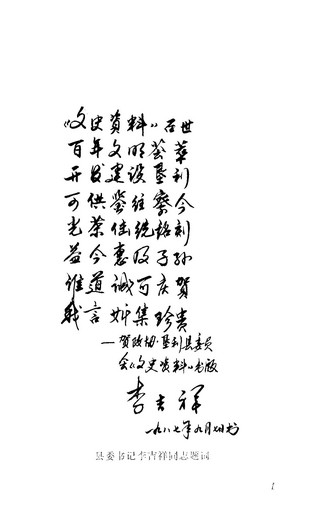 《文史资料》召世
百年文明荟萃
开发建设垦利
可供鉴往察今
光荣传统铭刻
益今惠及子孙
谁道诚可庆贺
我言 集珍贵
—贺政协·垦利县委员
会《文史资料》出版
李吉祥
一九八七年九月 日书
县委书记李吉祥同志题词
1